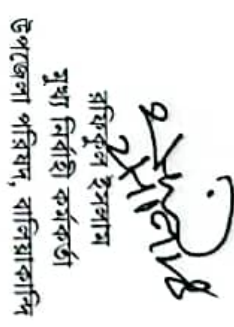 রফিকুল ইসলাম
মুখ্য নির্বাহী কর্মকর্তা
উপজেলা পরিষদ, বালিয়াকান্দি